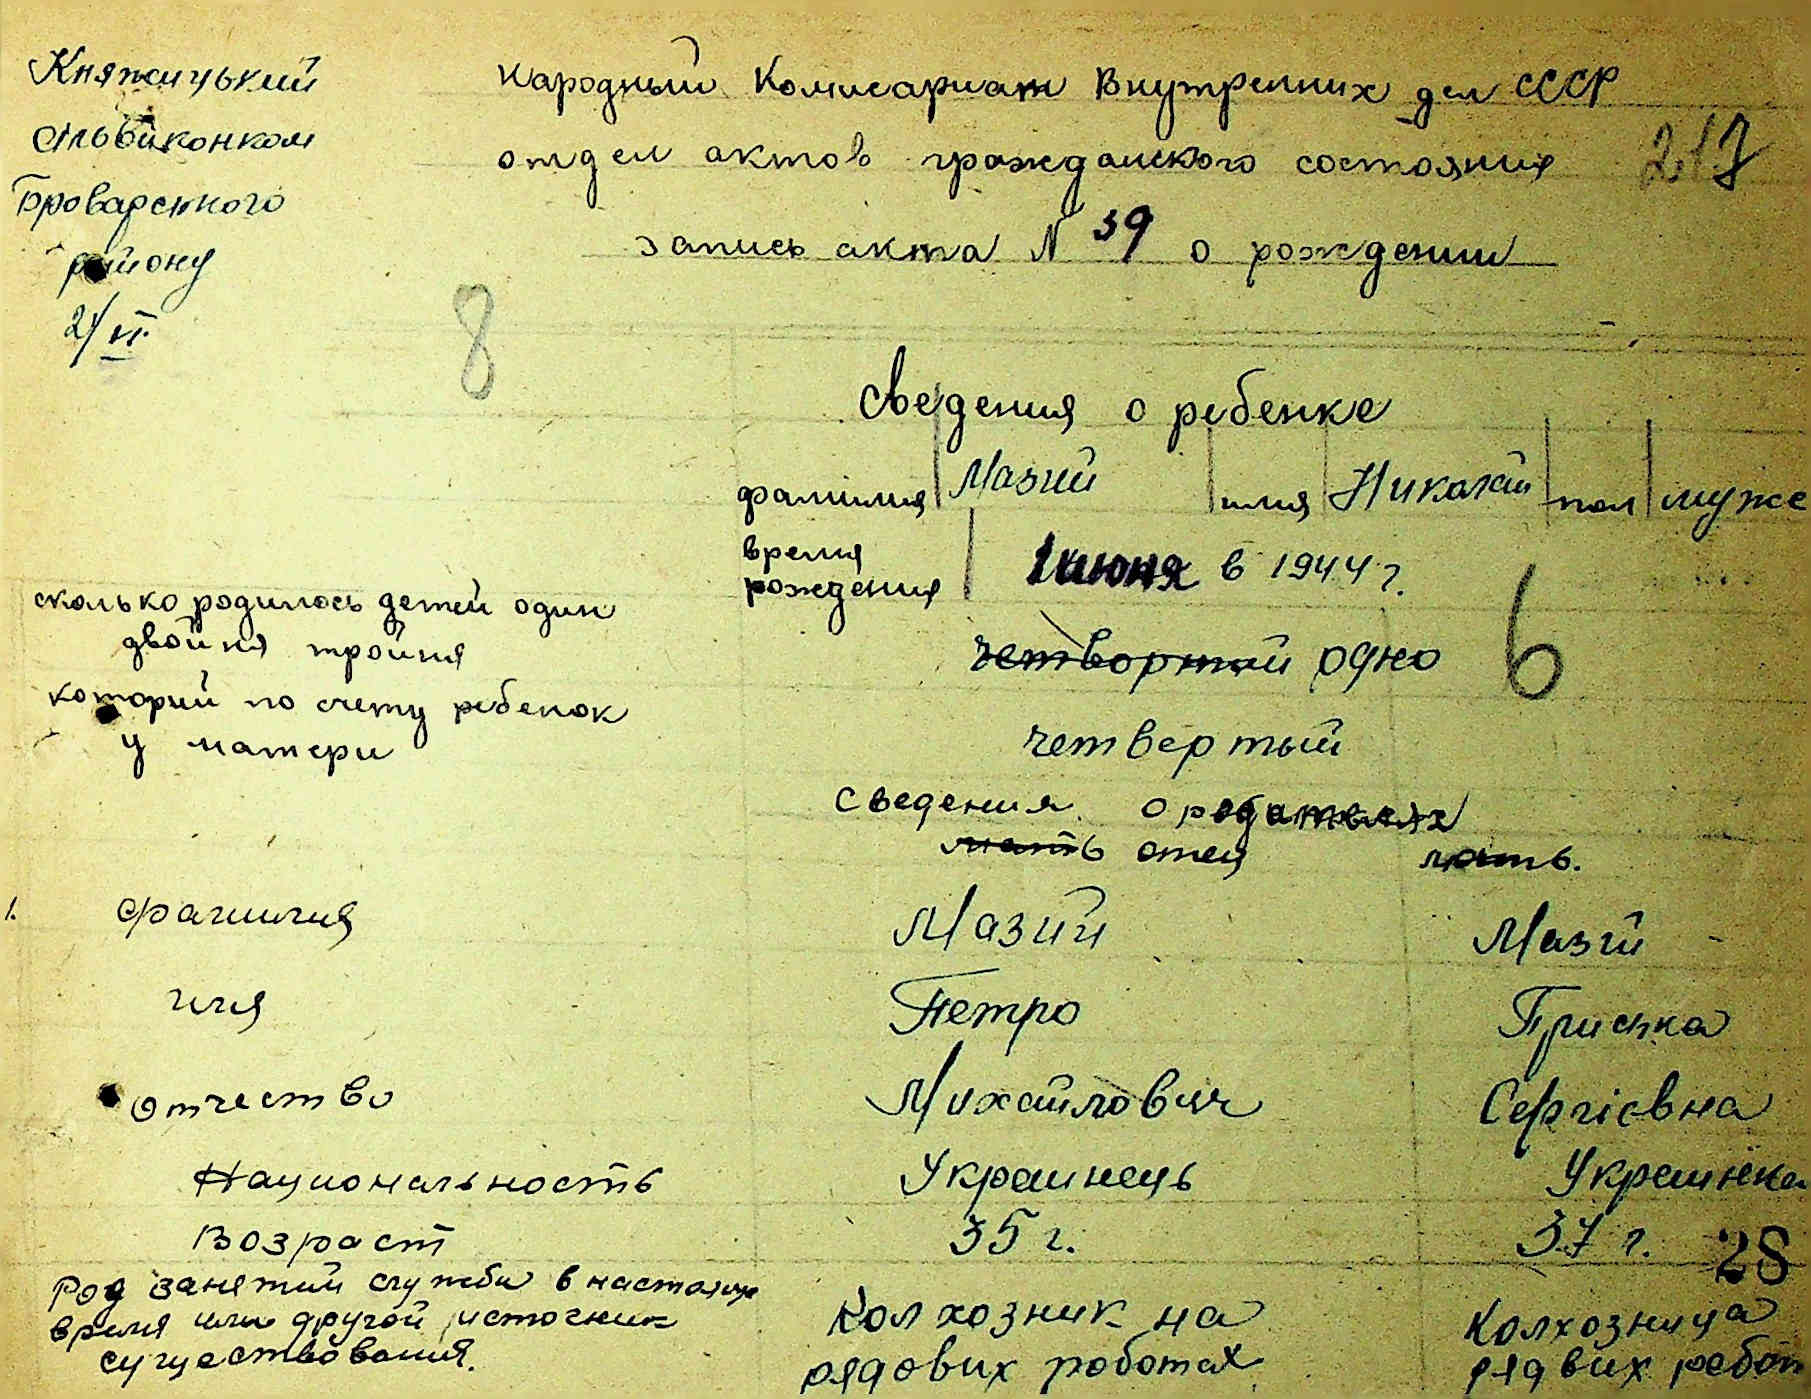 Княжицький
сільвиконком
Броварского
району
2/VI
Народный Комисариат Внутренних дел СССР
отдел актов гражданского состояния
217
запись акта N 39 о рождении
8
Сведения о ребенке
фамилия Мазий имя Николай пол муже
время
рождения 1 июня в 1944 г.
сколько родилось детей один
двойня тройня
четвортай одно
6
которий по счету ребенок
у матери
четвертый
сведения о родителях
мать отец мать.
1. фамилия Мазий Мазій
имя Петро Приська
Отчество Михайлович Сергієвна
Национальность Украинець Украинка
Возраст 35 г. 37 г.
28
Род занятий служби в настоящ
время или другой источник
существования.
Колхозник на
рядових роботах
Колхозница
рядвих работ